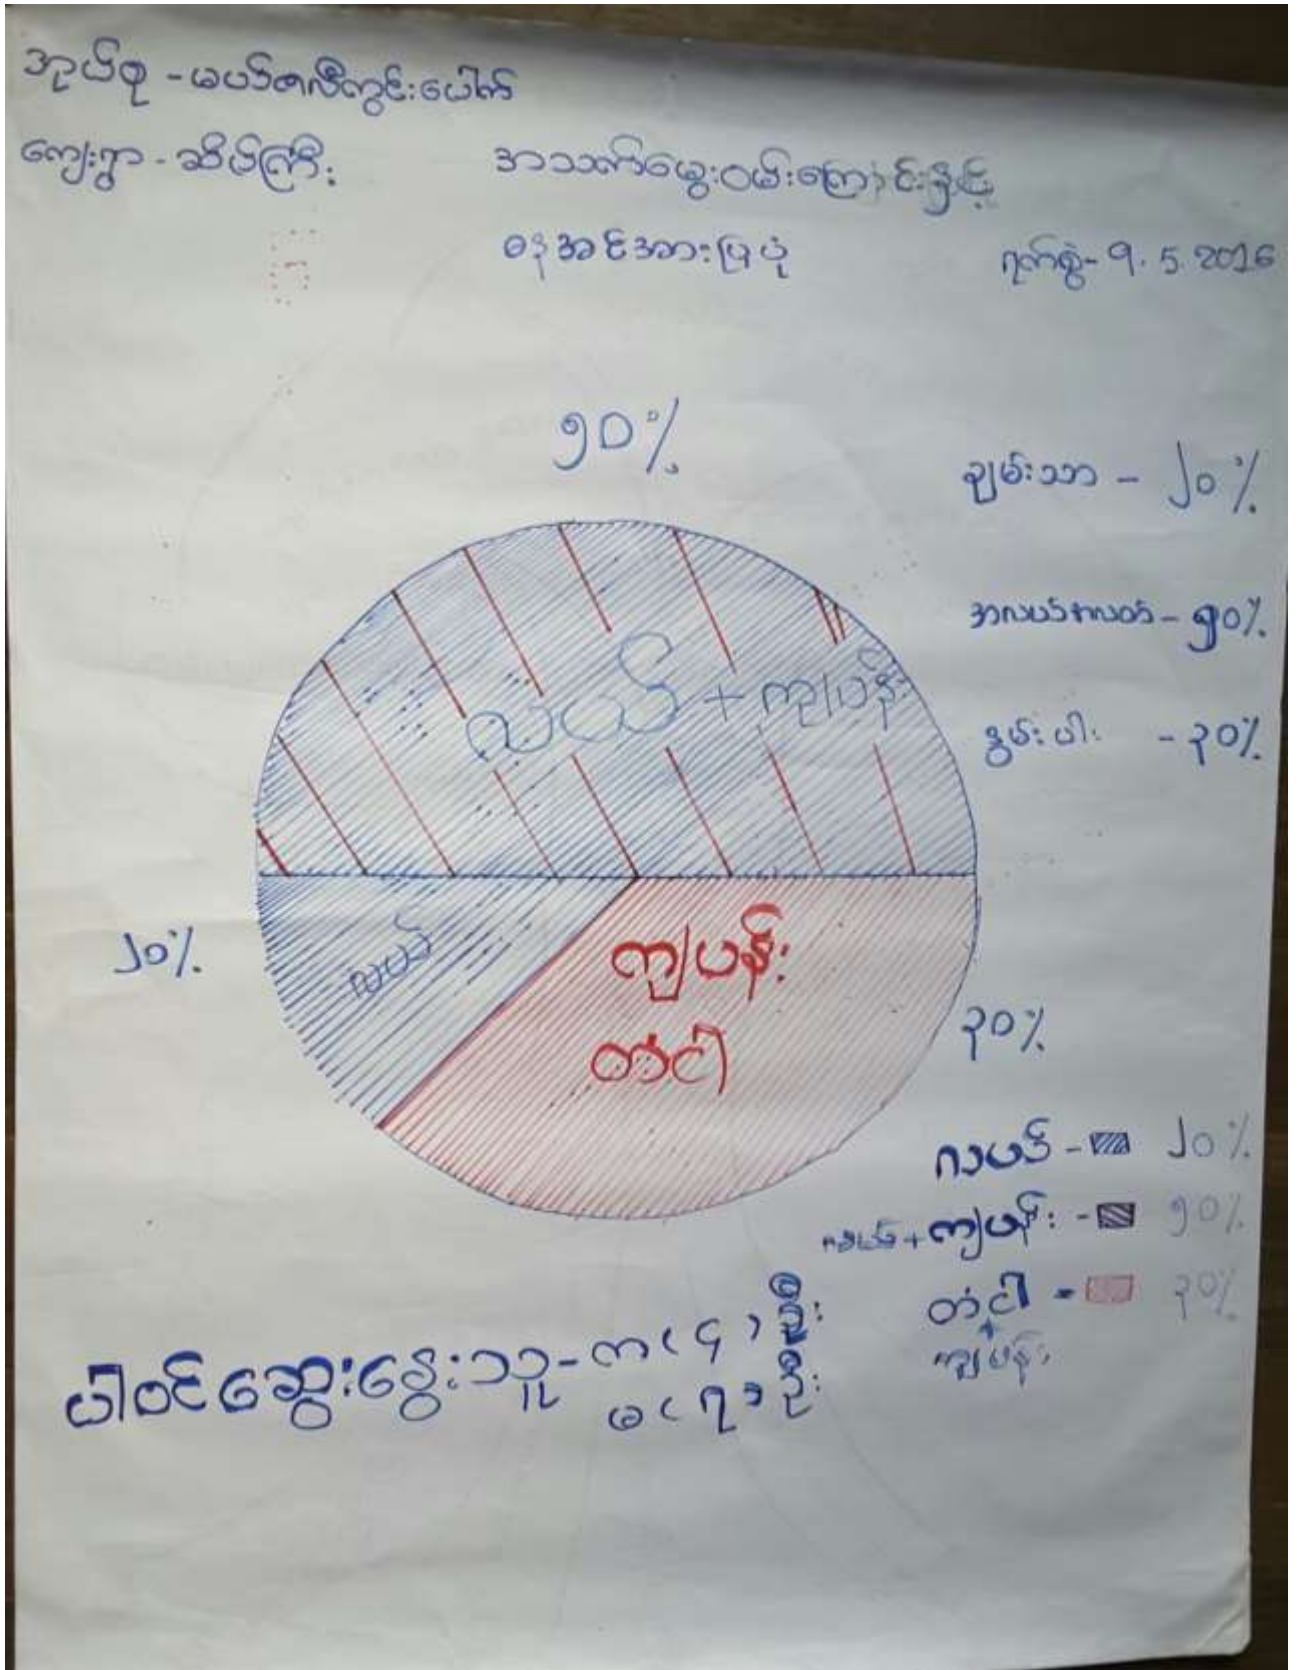 အုပ်စု - မယ်ဇလီကွင်းပေါက်
ကျေးရွာ - ဆိပ်ကြီး
အသက်မွေးဝမ်းကြောင်းနှင့်
ဓနအင်အားပြပုံ
ရက်စွဲ - 9.5.2016
၅၀%
ချမ်းသာ - ၂၀%
အလယ်အလတ် - ၅၀%
နွမ်းပါး - ၃၀%
လယ် + ကျပန်း
လယ်
၂၀%
ကျပန်း
တံငါ
၃၀%
လယ် - ၂၀%
လယ် + ကျပန်း - ၅၀%
တံငါ - ၃၀%
+
ကျပန်း
ပါဝင်ဆွေးနွေးသူ - က (၄) ဦး
မ (၇) ဦး